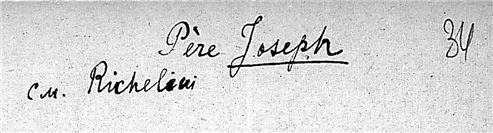 Père Joseph 34
см. Richelieu